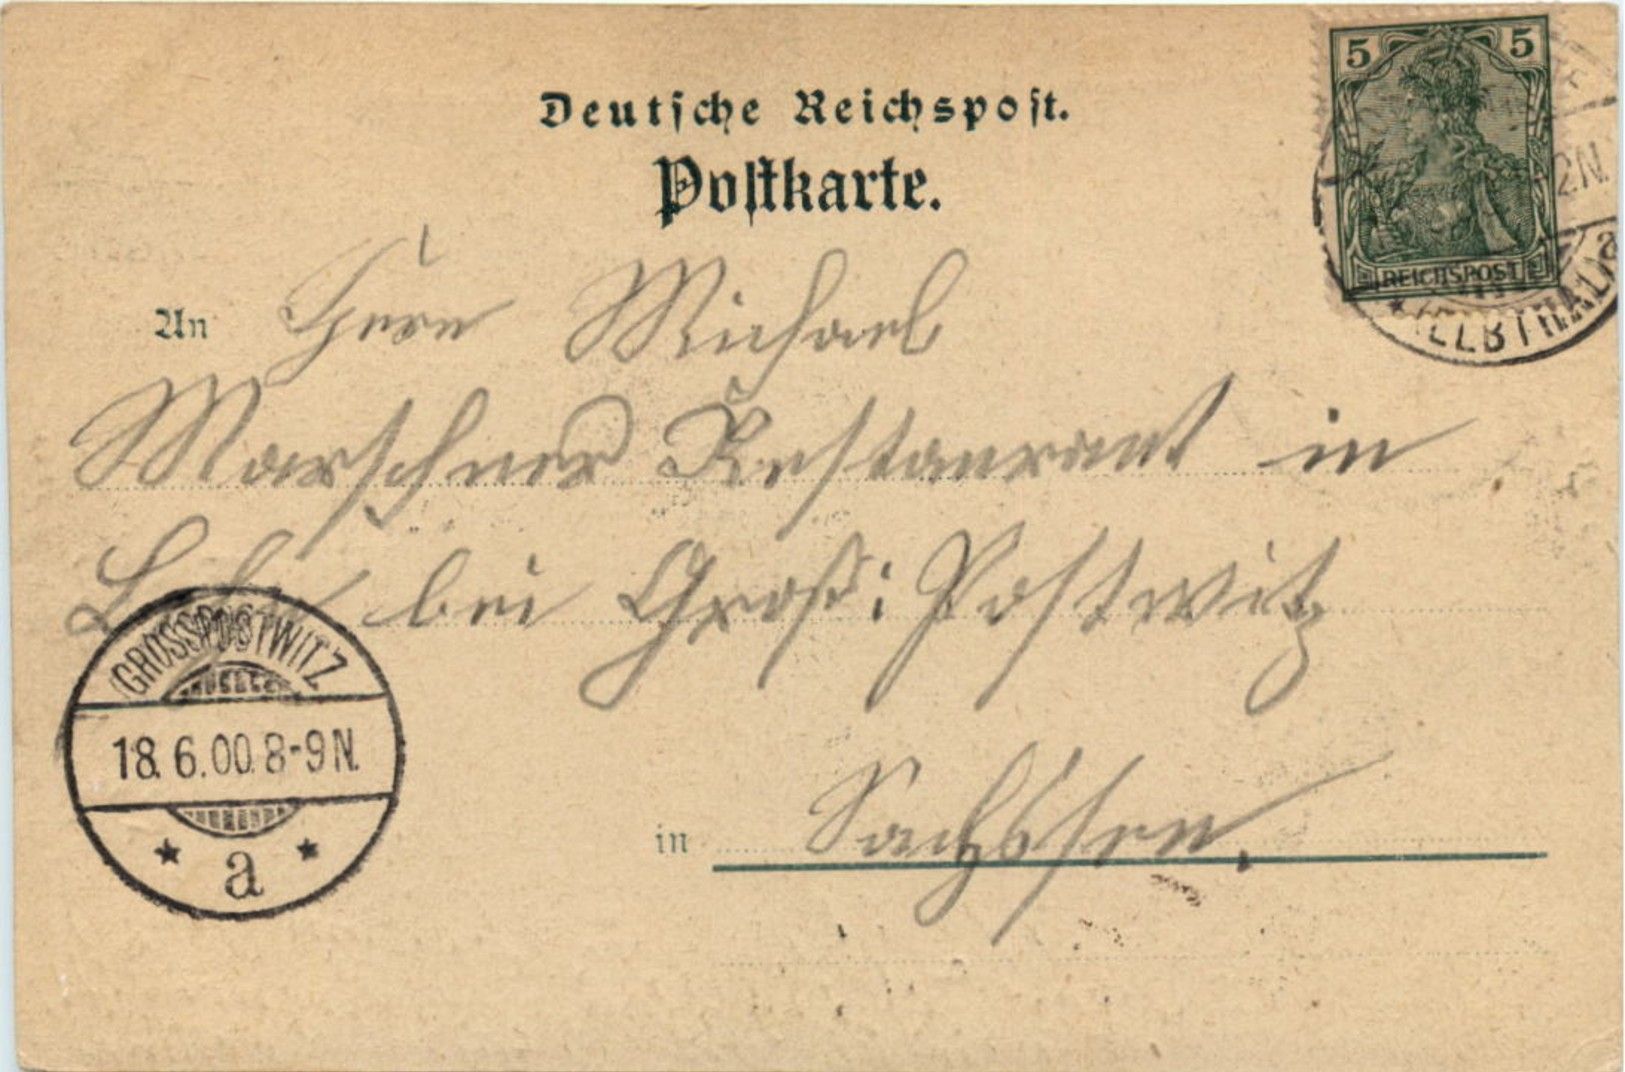 5 5
REICHSPOST
2N.
(ELBTHAL)
Deutsche Reichspost.
Postkarte.
An Herrn Michael
Marschner Restaurant in
bei Groß: Postwitz
GROSSPOSTWITZ
18.6.00.8-9N.
* a *
in Sachssen.